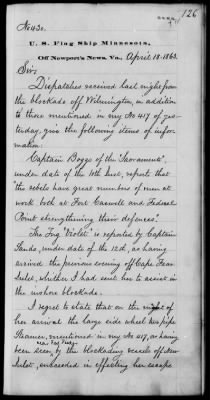 126
No 430.
U. S. Flag Ship Minnesota,
Off Newport's News, Va., April 18 1863.
Sir:
Dispatches received last night from
the blockade off Wilmington, in addition
to those mentioned in my No 417 of yes-
terday, give the following items of infor-
mation:
Captain Boggs of the "Sacramento",
under date of the 10th Inst, reports that
"the rebels have great numbers of men at
work both at Fort Caswell and Federal
Point strengthening their defences."
The Tug "Violet" is reported by Captain
Sands, under date of the 12th, as having
arrived the previous evening off Cape Fear
Inlet, whither I had sent her to assist in
the inshore blockade.
I regret to state that on the night of
her arrival the large side wheel pipe
Steamer, mentioned in my No 417, as having
been seen, near Fort Fisher by the blockading vessels off New
Inlet, succeeded in effecting her escape